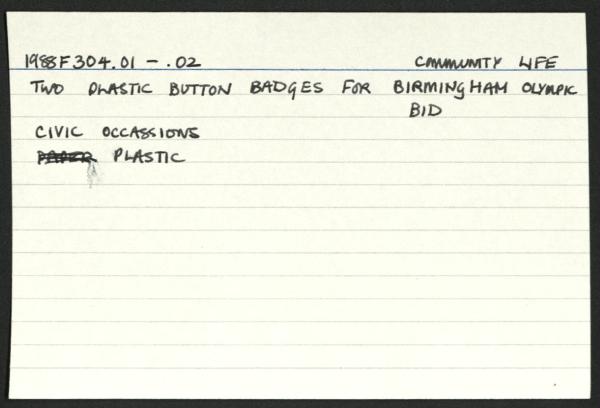 1988F304.01 - .02 COMMUNITY LIFE
TWO PLASTIC BUTTON BADGES FOR BIRMINGHAM OLYMPIC
BID
CIVIC OCCASSIONS
PAPER PLASTIC